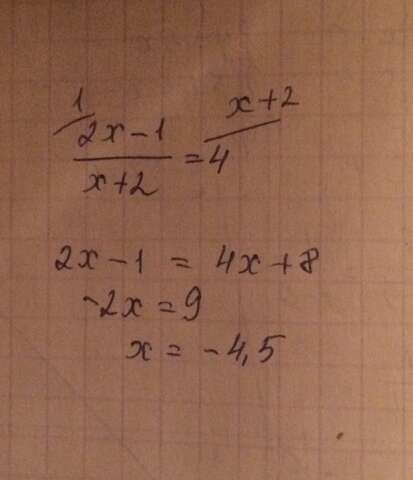 1 x+2
2x-1
x+2 =4
2x-1 = 4x+8
-2x = 9
x = -4,5